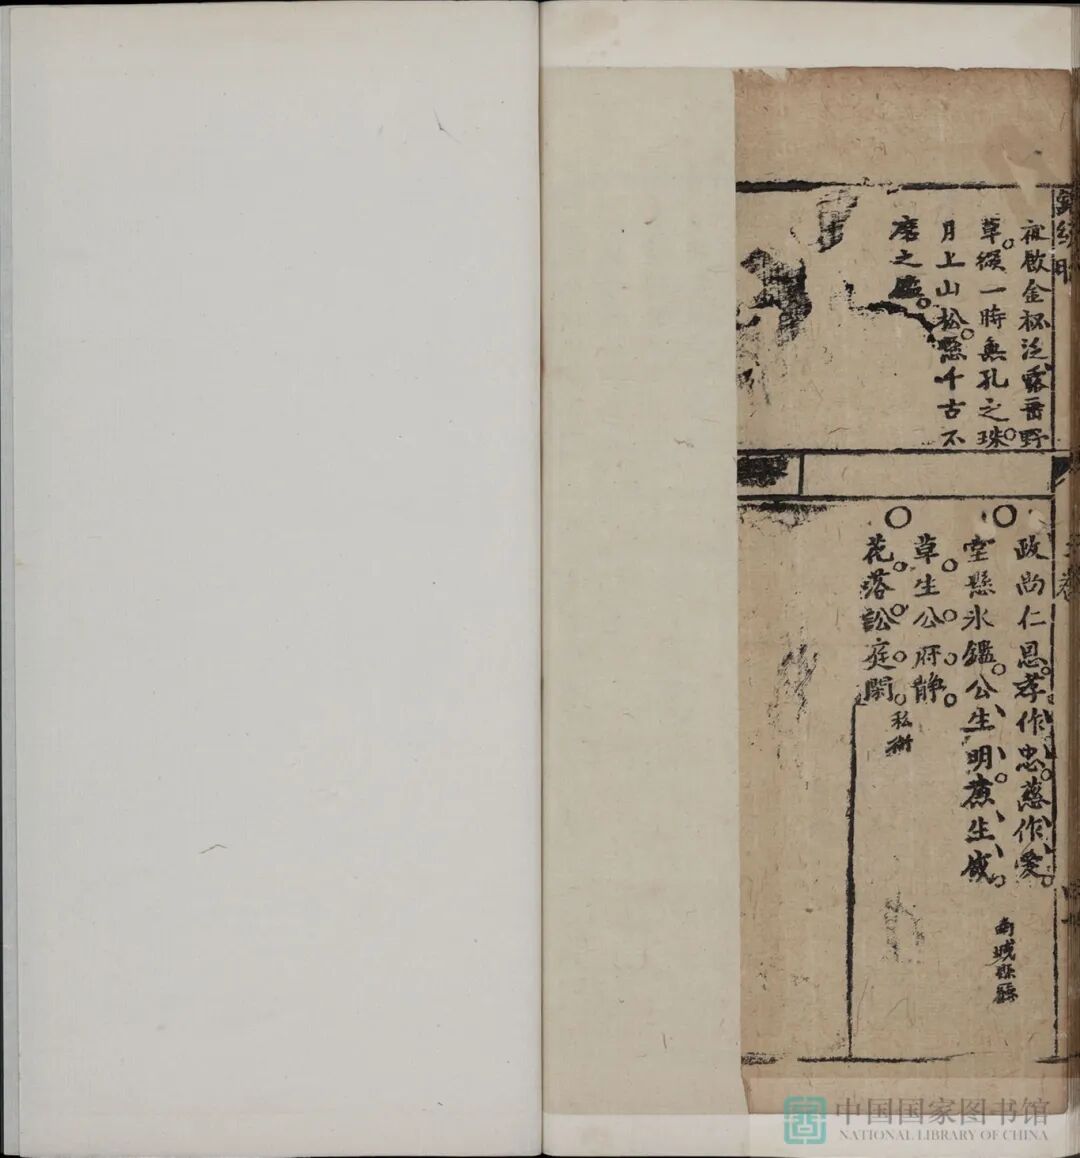 夜啟金杯泛露番野
草綴一時無孔之珠
月上山松懸千古不
磨之鑑
政尚仁恩孝作忠慈作愛
堂懸氷鑑公生明廉生威
南城縣廳
草生公府靜
花落訟庭閑
私衙
卷
中国国家图书馆
NATIONAL LIBRARY OF CHINA